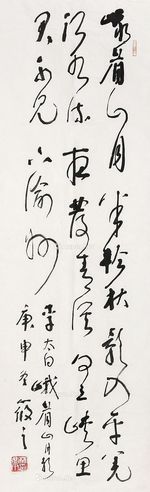 峨眉山月半轮秋影入平羌
江水流夜发清溪向三峡思
君不见下渝州
李太白峨眉山月歌
庚申冬